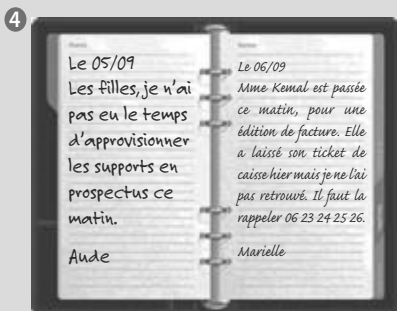 4
Le 05/09
Les filles, je n'ai
pas eu le temps
d'approvisionner
les supports en
prospectus ce
matin.
Aude
Le 06/09
Mme Kemal est passée
ce matin, pour une
édition de facture. Elle
a laissé son ticket de
caisse hier mais je ne l'ai
pas retrouvé. Il faut la
rappeler 06 23 24 25 26.
Marielle